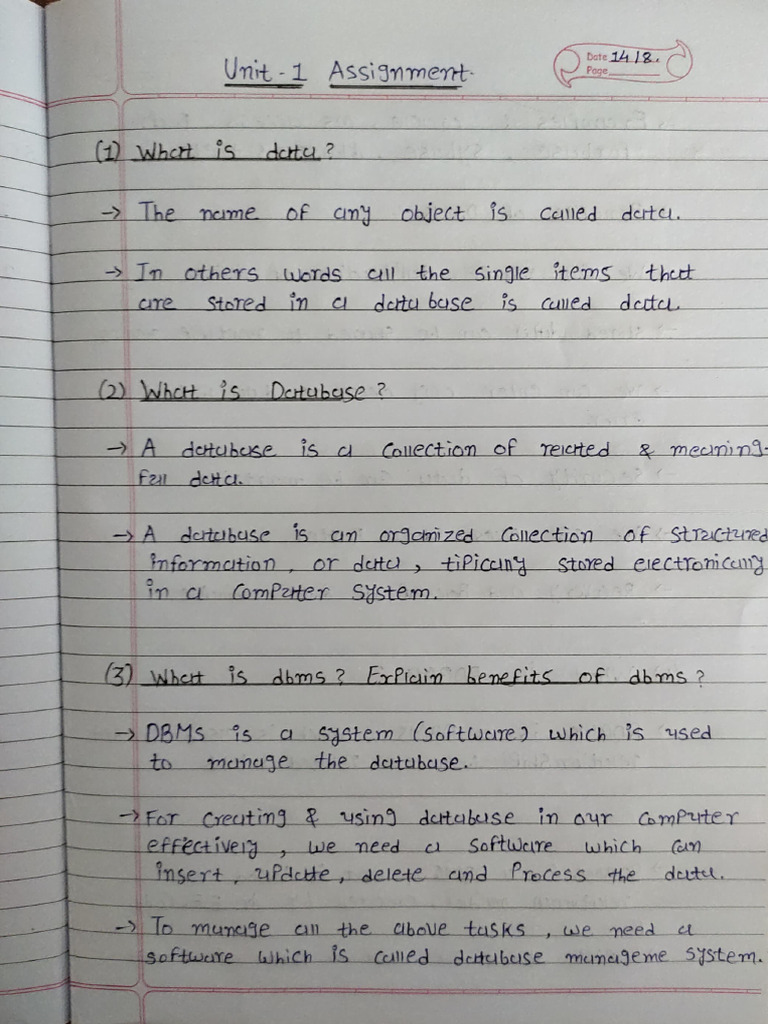 Unit - 1 Assignment.
Date 14/8.
Page
(1) What is data?
→ The name of any object is called data.
→ In others words all the single items that
are stored in a data base is called data.
(2) What is Database?
→ A database is a collection of related & meaning-
full data.
→ A database is an organized collection of structured
information, or data, tipically stored electronically
in a computer system.
(3) What is dbms? Explain benefits of dbms?
→ DBMS is a system (software) which is used
to manage the database.
→ For creating & using database in our computer
effectively, we need a software which can
insert, update, delete and process the data.
→ To manage all the above tasks, we need a
software which is called database manageme system.